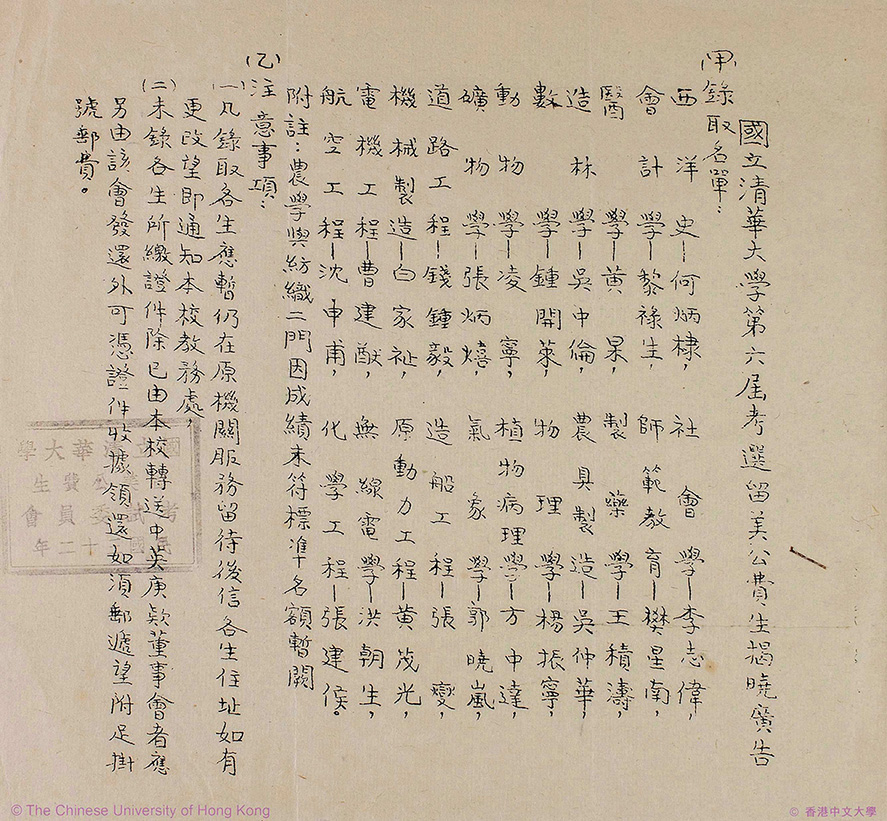 國立清華大學第六屆考選留美公費生揭曉廣告
(甲)錄取名單：
西洋史—何炳棣， 社會學—李志偉，
會計學—黎祿生， 師範教育—樊星南，
醫學—黃杲， 製藥學—王積濤，
造林學—吳中倫， 農具製造—吳仲華，
數學—鍾開萊， 物理學—楊振寧，
動物學—凌寧， 植物病理學—方中達，
礦物學—張炳熺， 氣象學—郭曉嵐，
道路工程—錢鍾毅， 造船工程—張燮，
機械製造—白家祉， 原動力工程—黃茂光，
電機工程—曹建猷， 無線電學—洪朝生，
航空工程—沈申甫， 化學工程—張建侯。
附註：農學與紡織二門因成績未符標準名額暫闕
(乙)注意事項：
(一)凡錄取各生應暫仍在原機關服務留待後信各生住址如有
更改望即通知本校教務處，
(二)未錄各生所繳證件除已由本校轉送中英庚款董事會者應
另由該會發還外可憑證件收據領還如須郵遞望附足掛
號郵費。
國立清華大學
公費生
考試委員會
民國 十二年
© The Chinese University of Hong Kong
© 香港中文大學